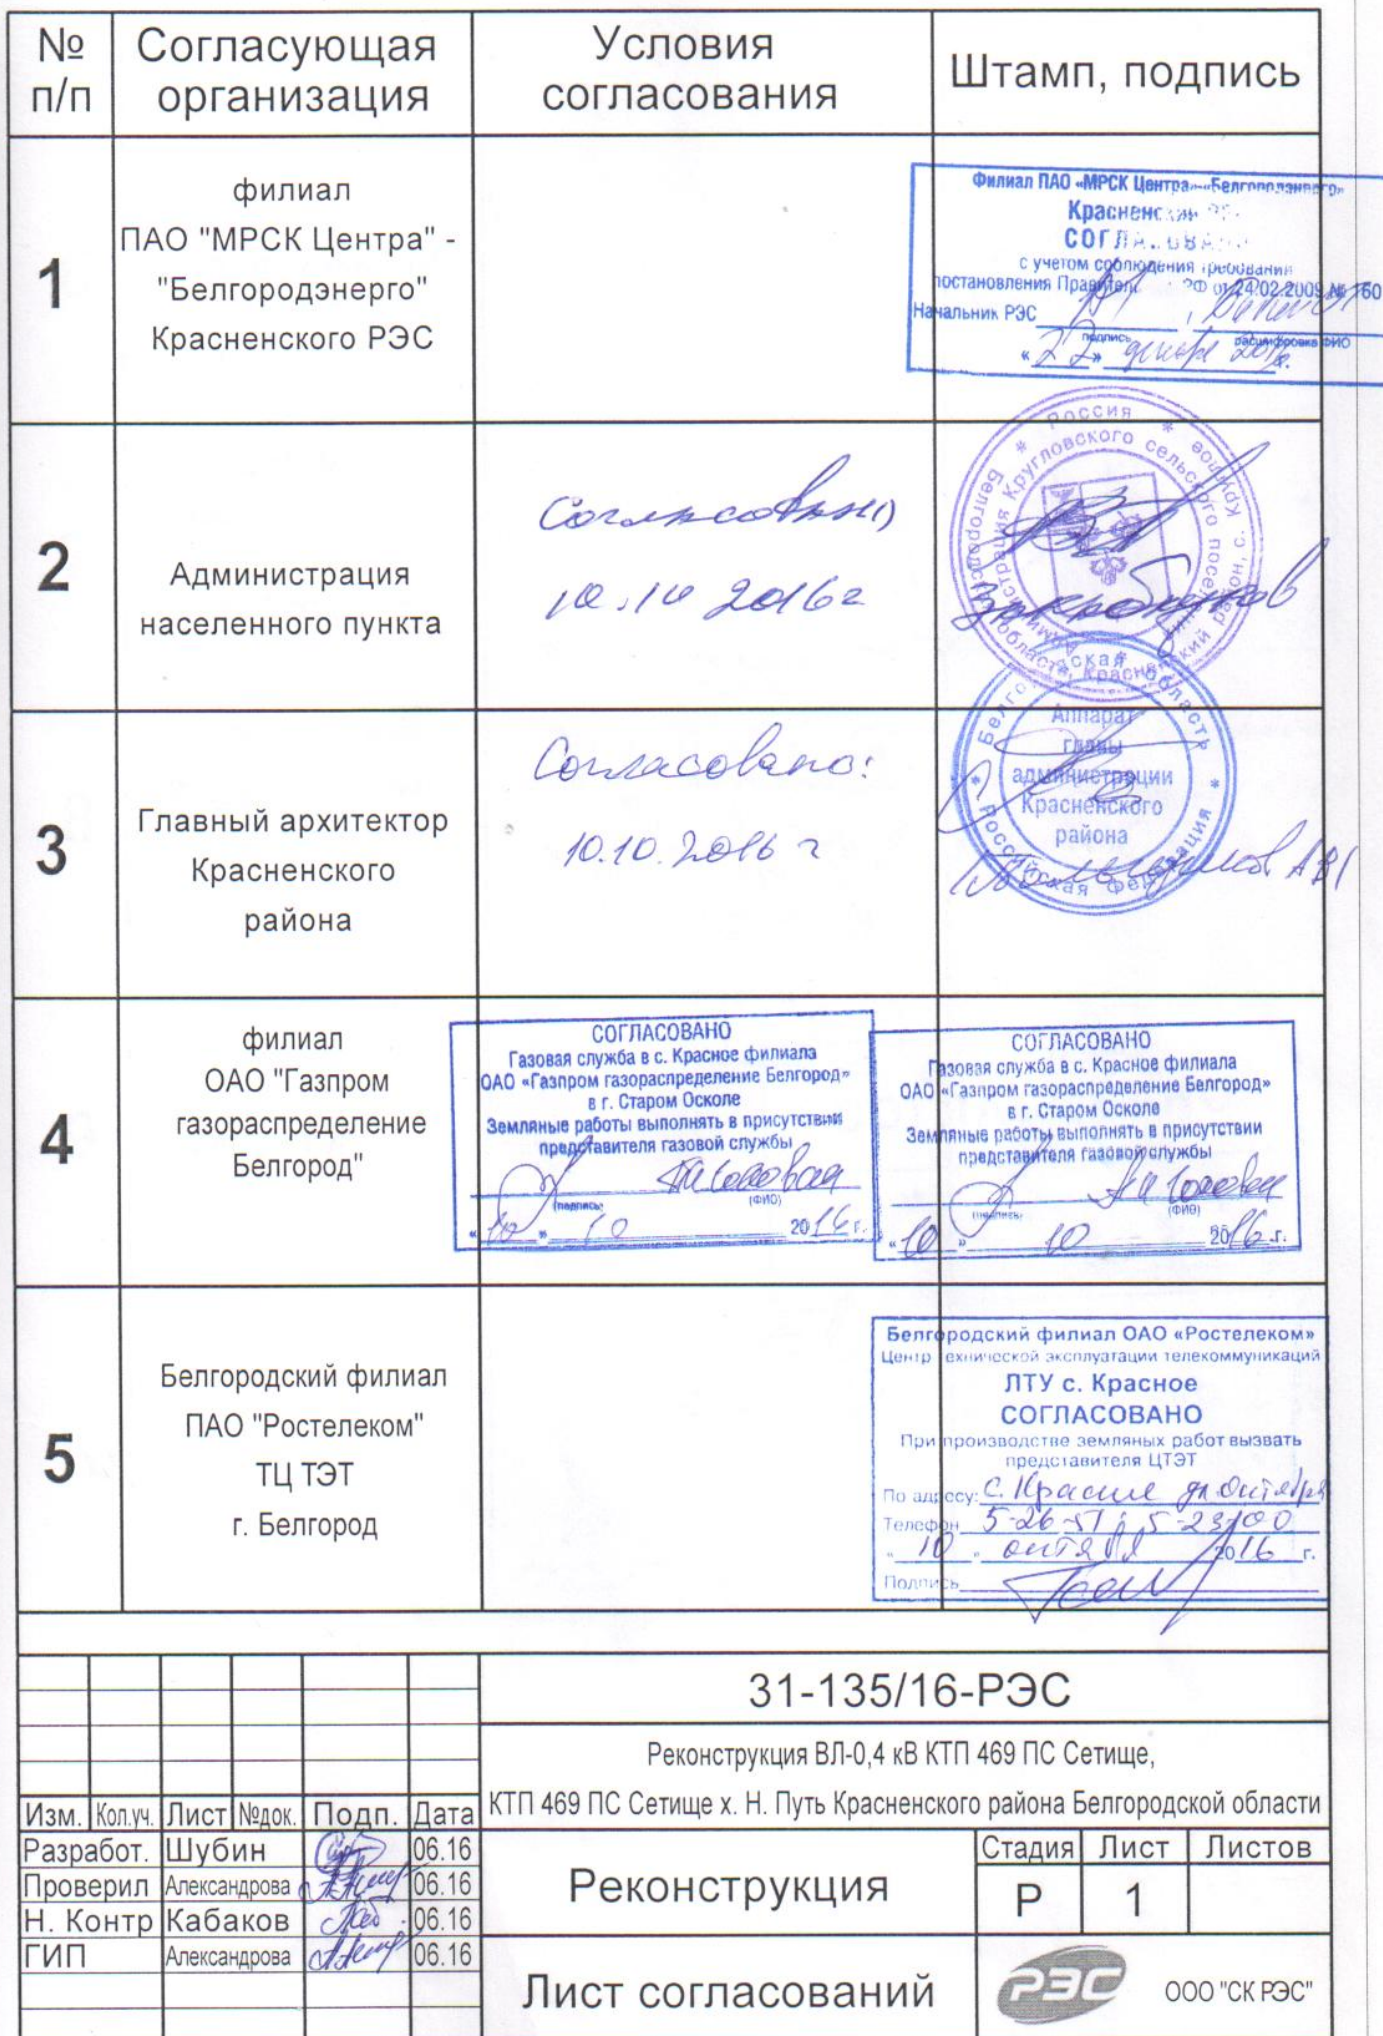 № п/п
Согласующая организация
Условия согласования
Штамп, подпись
1
филиал
ПАО "МРСК Центра" -
"Белгородэнерго"
Красненского РЭС
Филиал ПАО «МРСК Центра»-«Белгородэнерго»
Красненский
СОГЛАСОВАНО
с учетом соблюдения требований
постановления РФ от 24.02.2009 № 160
Начальник РЭС
подпись расшифровка ФИО
«22» декабря 2016г.
2
Администрация
населенного пункта
Согласовано
10.10 2016г
Россия
Белгородская область, Красненский район, с. Круглое
Администрация Кругловского сельского поселения
3
Главный архитектор
Красненского
района
Согласовано:
10.10.2016 г
Белгородская область
Российская Федерация
Аппарат
главы
администрации
Красненского
района
4
филиал
ОАО "Газпром
газораспределение
Белгород"
СОГЛАСОВАНО
Газовая служба в с. Красное филиала
ОАО «Газпром газораспределение Белгород»
в г. Старом Осколе
Земляные работы выполнять в присутствии
представителя газовой службы
(подпись) (ФИО)
«10» 10 2016 г.
СОГЛАСОВАНО
Газовая служба в с. Красное филиала
ОАО «Газпром газораспределение Белгород»
в г. Старом Осколе
Земляные работы выполнять в присутствии
представителя газовой службы
(подпись) (ФИО)
«10» 10 2016 г.
5
Белгородский филиал
ПАО "Ростелеком"
ТЦ ТЭТ
г. Белгород
Белгородский филиал ОАО «Ростелеком»
Центр технической эксплуатации телекоммуникаций
ЛТУ с. Красное
СОГЛАСОВАНО
При производстве земляных работ вызвать
представителя ЦТЭТ
По адресу: с. Красное ул Октября
Телефон 5-26-51; 5-23-00
«10» октября 2016 г.
Подпись
31-135/16-РЭС
Реконструкция ВЛ-0,4 кВ КТП 469 ПС Сетище,
КТП 469 ПС Сетище х. Н. Путь Красненского района Белгородской области
Изм. Кол.уч. Лист №док. Подп. Дата
Разработ. Шубин 06.16
Проверил Александрова 06.16
Н. Контр Кабаков 06.16
ГИП Александрова 06.16
Реконструкция
Стадия Лист Листов
Р 1
Лист согласований
РЭС
ООО "СК РЭС"